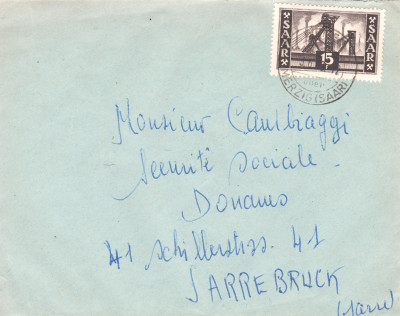 SAAR 15 F SAAR
MERZIG (SAAR)
Monsieur Cambiaggi
Securité Sociale
Douanes
41 Schillerstrss. 41
SARREBRUCK
(Sarre)